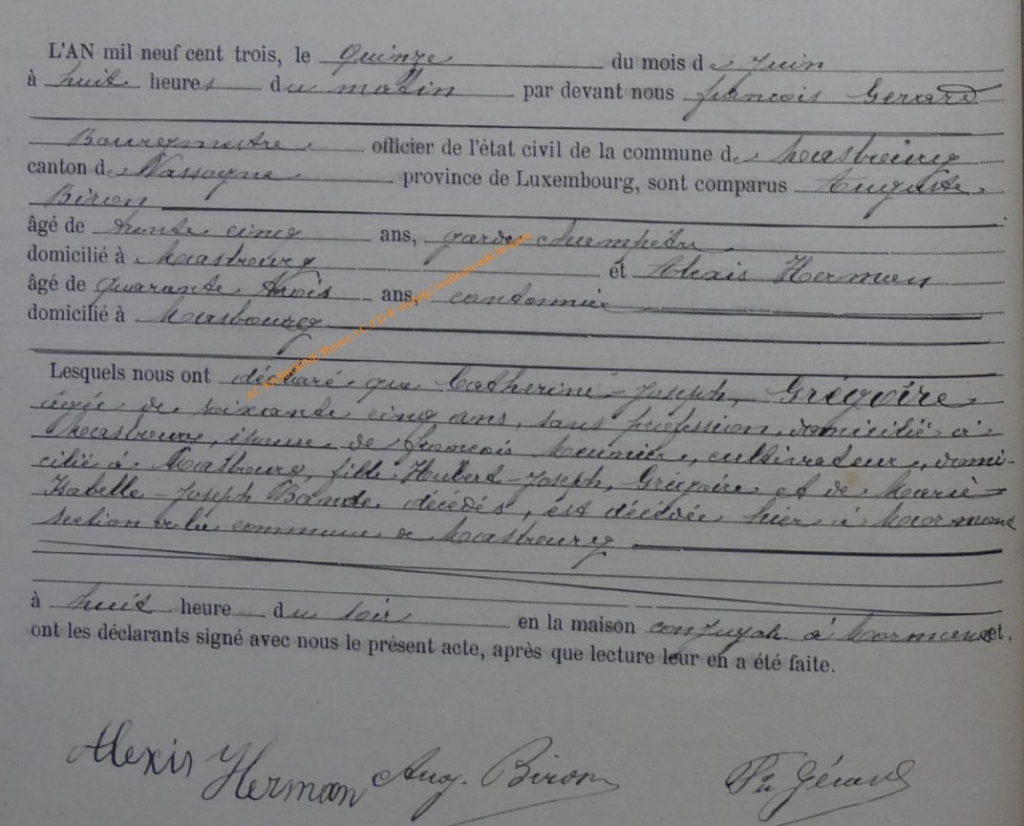 L'AN mil neuf cent trois, le quinze du mois de Juin
à huit heures du matin par devant nous françois Gerard
Bourgmestre officier de l'état civil de la commune de Masbourg
canton de Nassogne province de Luxembourg, sont comparus Auguste
Biron
âgé de trente cinq ans, garde champêtre
domicilié à Masbourg et Alexis Herman
âgé de quarante trois ans cantonnier
domicilié à Masbourg
Lesquels nous ont déclaré que Catherine-Joseph, Grégoire
âgée de soixante cinq ans, sans profession, domicilié à
Masbourg, épouse de françois Meunier, cultivateur, domi-
cilié à Masbourg, fille Hubert-Joseph, Grégoire et de Marie
Isabelle-Joseph Bande, décédés, est décédée hier à Mormont
section de la commune de Masbourg
à huit heure du soir en la maison conjugale à Mormont et.
ont les déclarants signé avec nous le présent acte, après que lecture leur en a été faite.
Alexis Herman Aug. Biron Gérard